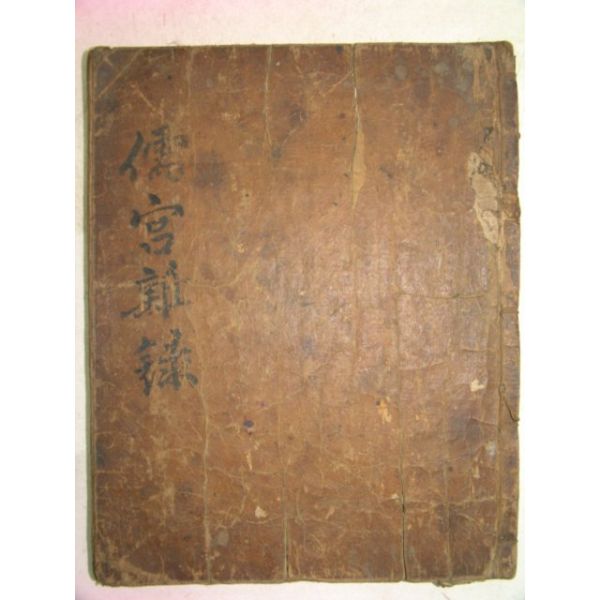 儒宮雜錄